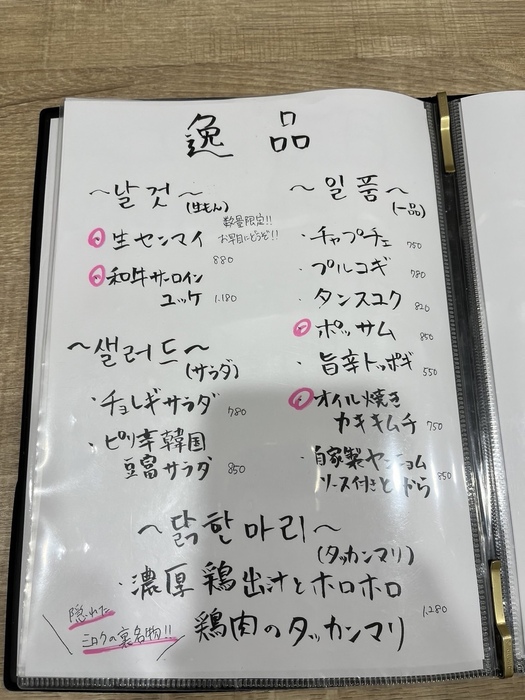 逸品
~날것~
(生もん)
数量限定!!
お早目にどうぞ!!
生センマイ
880
和牛サーロイン
ユッケ 1.180
~샐러드~
(サラダ)
・チョレギサラダ 780
・ピリ辛韓国
豆富サラダ 850
~일품~
(一品)
・チャプチェ 750
・プルコギ 780
・タンスユク 820
ポッサム 850
・旨辛トッポギ 550
オイル焼き
カキキムチ 750
・自家製ヤンニョム
ソース付き
850
~닭한마리~
(タッカンマリ)
・濃厚鶏出汁とホロホロ
鶏肉のタッカンマリ 1.280
隠れた
ミロクの裏名物!!